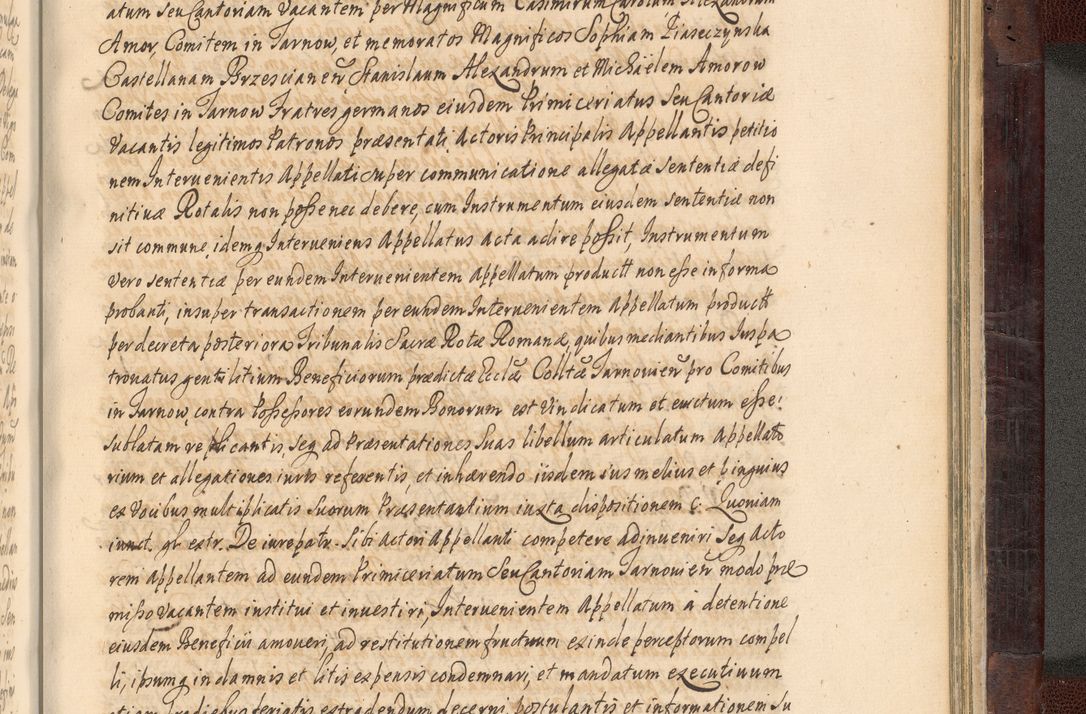 atum Seu Cantoriam Vacantem per Magnificum Casimirum Carolum Alexandrum
Amor, Comitem in Tarnow, et memoratos Magnificos Sophiam Piaseczynska
Castellanam Brzescianeñ Stanislaum Alexandrum et Michaëlem Amorow
Comites in Tarnow Fratres germanos eiusdem Primiceriatus Seu Cantoriæ
Vacantis legitimos Patronos præsentati Actoris Principalis Appellantis petitio
nem Interuenientis Appellati super communicatione allegatæ sententiæ defi
nitiuæ Rotalis non posse nec debere, cum Instrumentum eiusdem sententiæ non
sit commune, idemq Interueniens Appellatus Acta adire possit, Instrumentum
vero sententiæ per eundem Interuenientem Appellatum productt non esse in forma
probanti, insuper transactionem per eundem Interuenientem Appellatum productt
per decreta posteriora Tribunalis Sacræ Rotæ Romanæ, quibus mediantibus Iuspa
tronatus gentilitium Beneficiorum prædictæ Ecclæ Colltæ Tarnouieñ pro Comitibus
in Tarnow, contra Possessores eorundem Bonorum est Vindicatum et euictum esse:
sublatam replicantis, seq ad Præsentationes Suas libellum articulatum Appellato
rium et allegationes iuris referentis, et inhærendo iisdem sus melius et pinguius
ex Vocibus multiplicatis Suorum Præsentantium iuxta dispositionem C: Quoniam
iunct. gl. extr. De iurepatr. Sibi Actori Appellanti competere adinueniri Seq Acto
rem Appellantem ad eundem Primiceriatum Seu Cantoriam Tarnouieñ modo præ
misso vacantem institui et inuestiri, Interuenientem Appellatum à detentione
eiusdem Beneficii amoueri, ad restitutionem fructuum exinde perceptorum compel
li, ipsumq in damnis et litis expensis condemnari, et mandatum executiuum
etiam diebus feriatis extradendum decerni, postulantis et informationem Iu